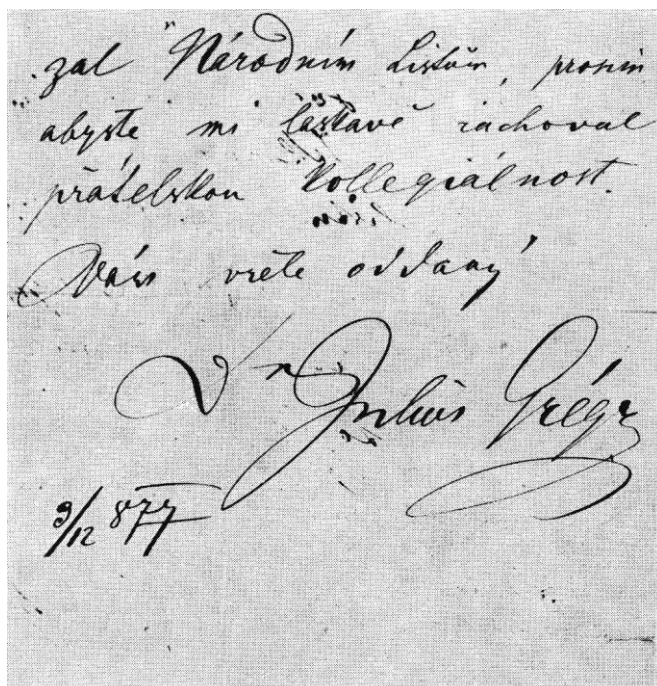 zal "Národním Listům, prosím
abyste mi laskavě zachoval
přátelskou kollegiálnost.
Vám vřele oddaný
Dr Julius Grégr
3/12 877